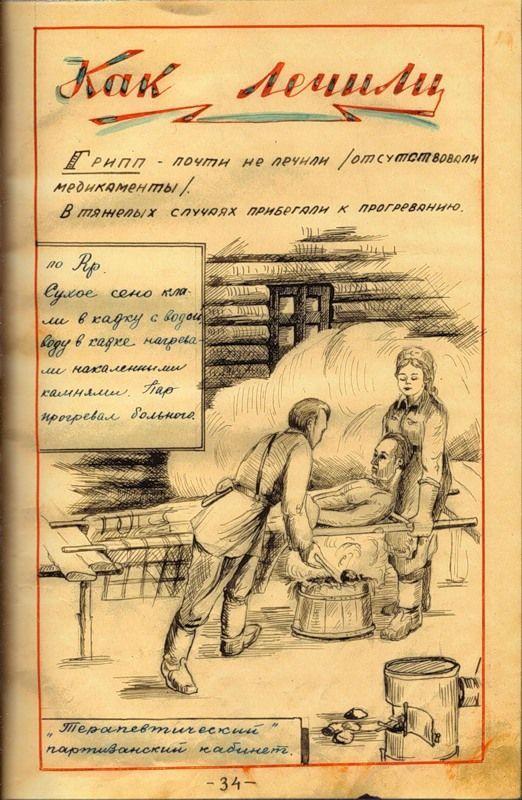 Как лечили
Грипп - почти не лечили /отсутствовали
медикаменты/.
В тяжелых случаях прибегали к прогреванию.
по Rp.
Сухое сено кла-
ли в кадку с водой
воду в кадке нагрева-
ли накаленными
камнями. Пар
прогревал больного.
„Терапевтический"
партизанский кабинет.
-34-